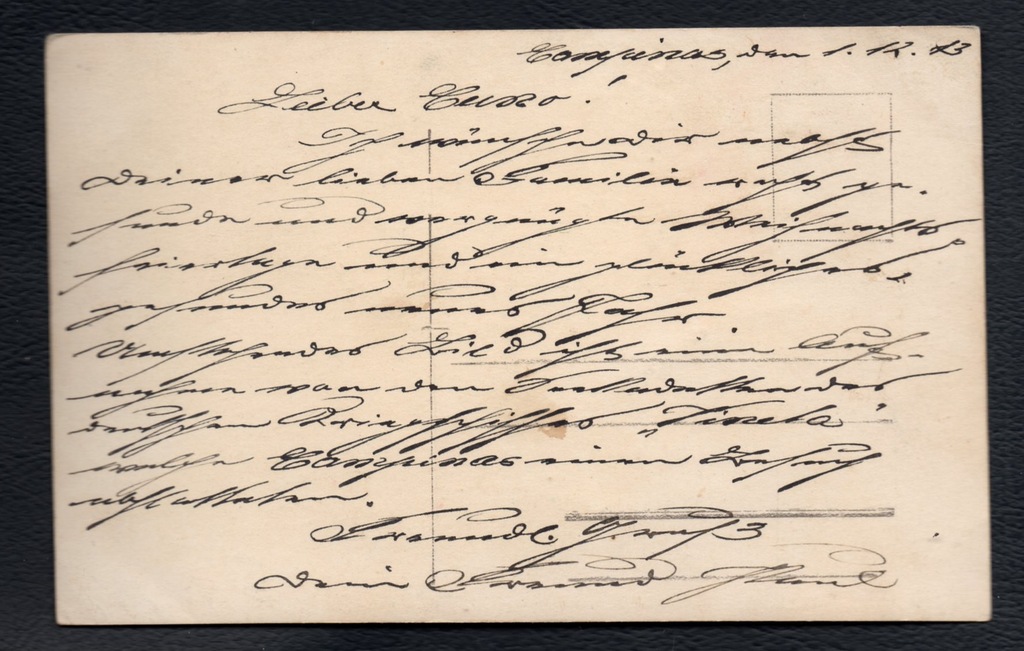 Campinas, den 1. 12. 13
Lieber Cuno!
Ich wünsche Dir nebst
Deiner lieben Familie recht ge-
sunde und vergnügte Weihnachts-
feiertage und ein glückliches
gesundes neues Jahr
Umstehendes Bild ist eine Auf-
nahme von den Seekadetten des
deutschen Kriegsschiffes „Vineta"
welche Campinas einen Besuch
abstatteten.
Freundl. Gruß
Dein Freund Paul